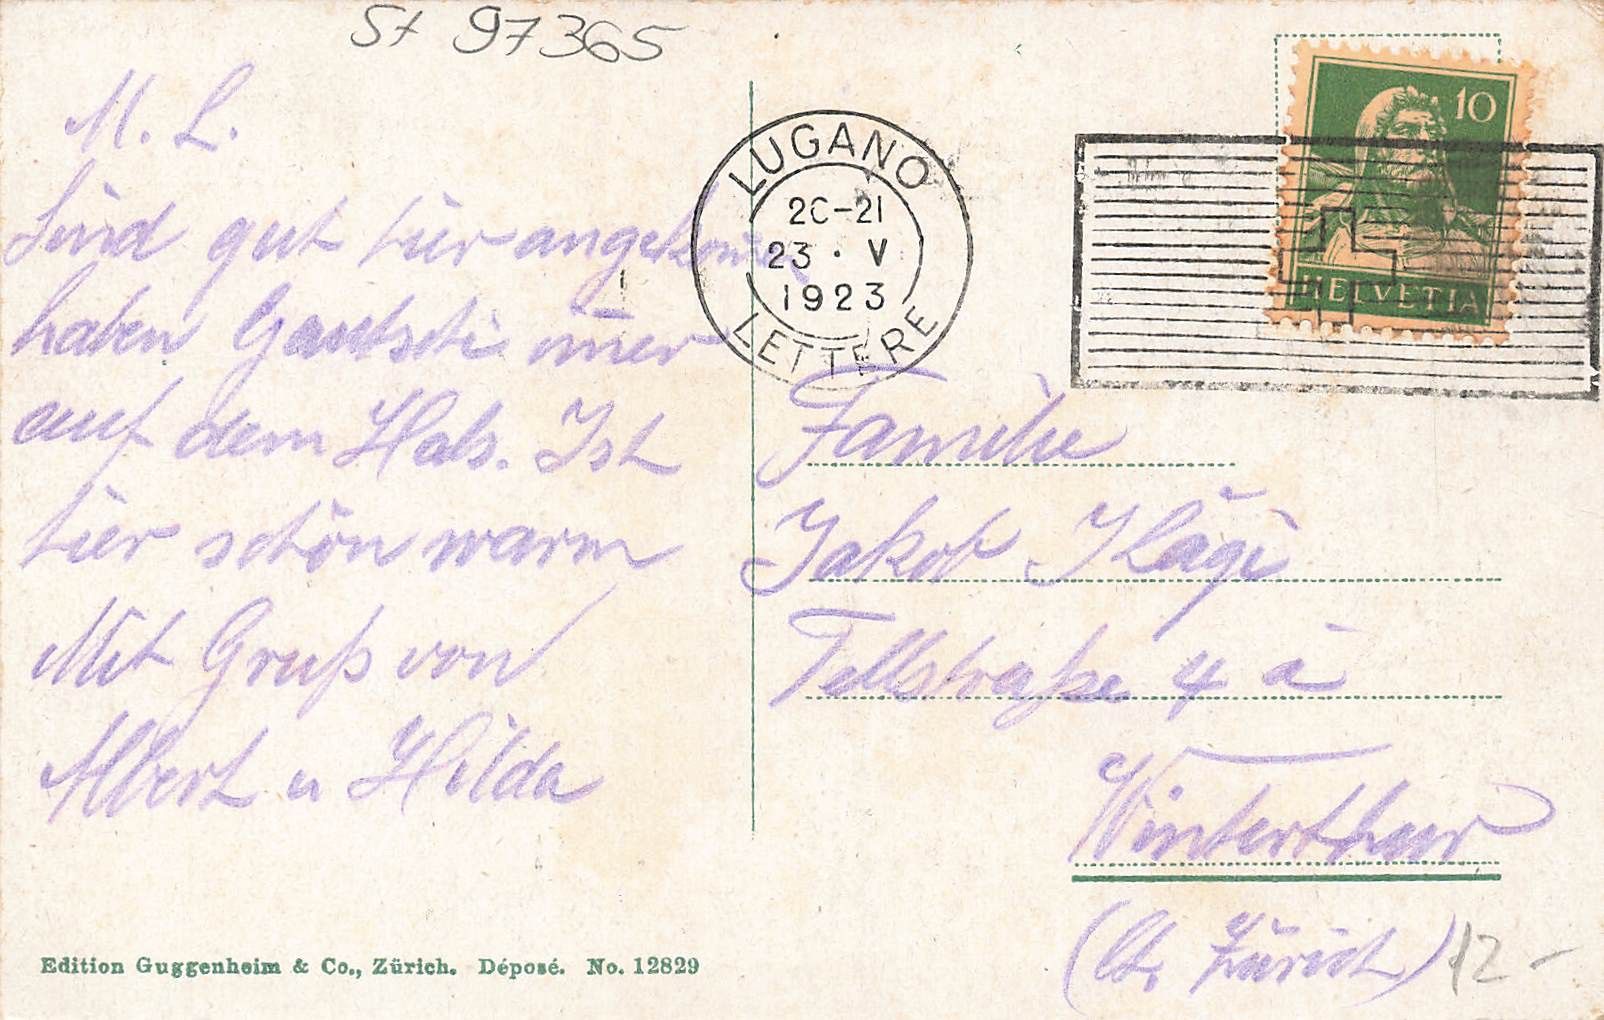 St 97365
M. L.
Sind gut hier angekomm
haben immer
auf dem Hals. Ist
hier schön warm
Mit Gruß von
Albert u Hilda
Edition Guggenheim & Co., Zürich. Déposé. No. 12829
LUGANO
20-21
23 · V
1923
LETTERE
10
HELVETIA
Familie
Jakob Hägi
Tellstraße 4 a
Winterthur
(Ct. Zürich)
12-